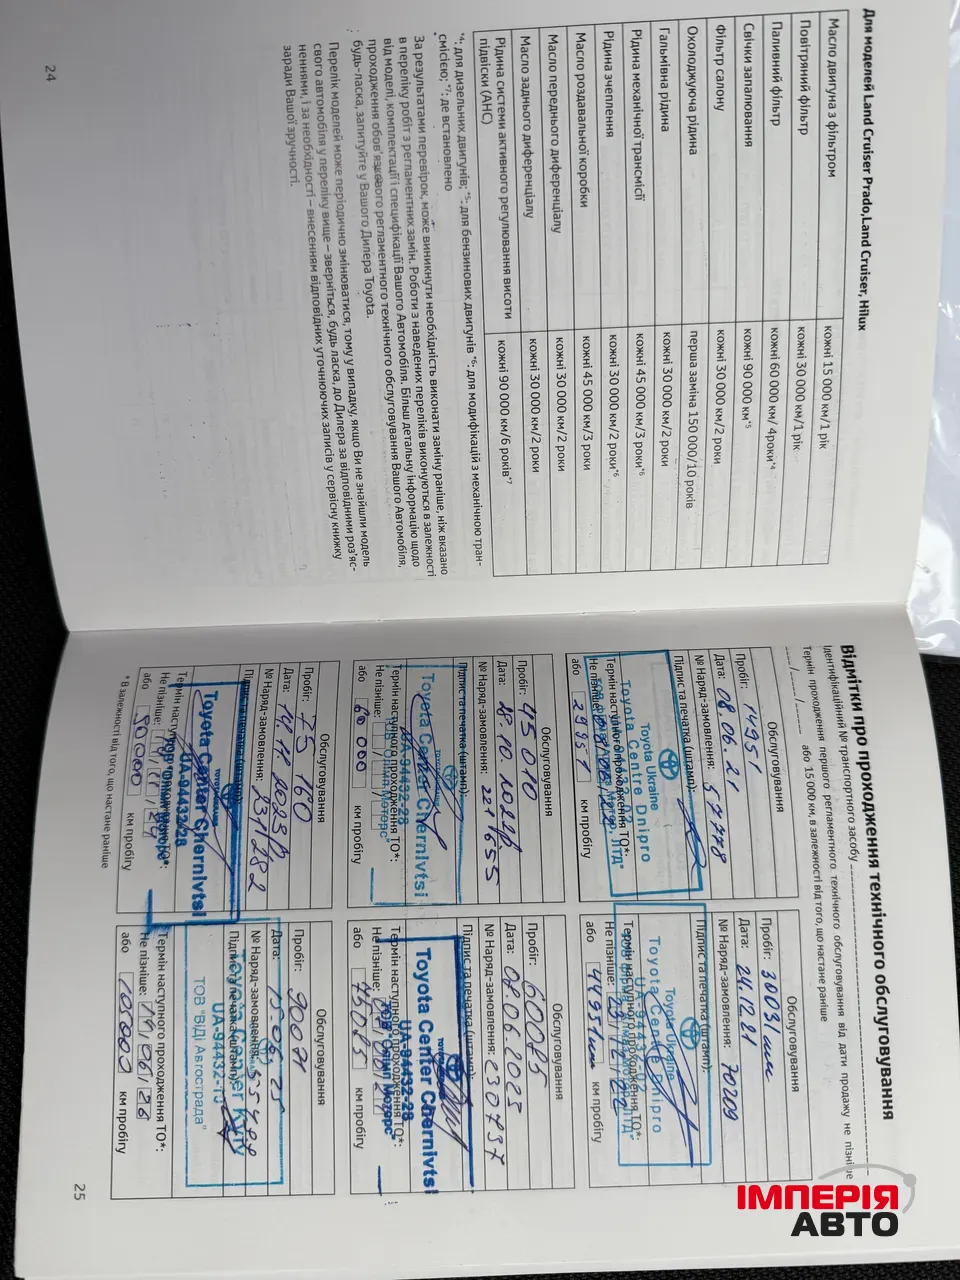 Для моделей Land Cruiser Prado, Land Cruiser, Hilux
Масло двигуна з фільтром кожні 15 000 км/1 рік
Повітряний фільтр кожні 30 000 км/1 рік
Паливний фільтр кожні 60 000 км/ 4роки*4
Свічки запалювання кожні 90 000 км*5
Фільтр салону кожні 30 000 км/2 роки
Охолоджуюча рідина перша заміна 150 000/10 років
Гальмівна рідина кожні 30 000 км/2 роки
Рідина механічної трансмісії кожні 45 000 км/3 роки*6
Рідина зчеплення кожні 30 000 км/2 роки*6
Масло роздавальної коробки кожні 45 000 км/3 роки
Масло переднього диференціалу кожні 30 000 км/2 роки
Масло заднього диференціалу кожні 30 000 км/2 роки
Рідина системи активного регулювання висоти
підвіски (AHC) кожні 90 000 км/6 років*7
*4: для дизельних двигунів; *5: для бензинових двигунів *6: для модифікацій з механічною тран-
смісією; *7: де встановлено
За результатами перевірок, може виникнути необхідність виконати заміну раніше, ніж вказано
в переліку робіт з регламентних замін. Роботи з наведених переліків виконуються в залежності
від моделі, комплектації і специфікації Вашого Автомобіля. Більш детальну інформацію щодо
проходження обов'язкового регламентного технічного обслуговування Вашого Автомобіля,
будь-ласка, запитуйте у Вашого Дилера Toyota.
Перелік моделей може періодично змінюватися, тому у випадку, якщо Ви не знайшли модель
свого автомобіля у переліку вище – зверніться, будь ласка, до Дилера за відповідними роз'яс-
неннями, і за необхідності – внесенням відповідних уточнюючих записів у сервісну книжку
заради Вашої зручності.
24
Відмітки про проходження технічного обслуговування
Ідентифікаційний № транспортного засобу
Термін проходження першого регламентного технічного обслуговування від дати продажу не пізніше
або 15 000 км, в залежності від того, що настане раніше
Обслуговування
Пробіг: 14951
Дата: 08.06.21
№ Наряд-замовлення: 57778
Підпис та печатка (штамп):
Toyota Ukraine
Toyota Centre Dnipro
Термін наступного проходження ТО*:
Не пізніше:
або 29951 км пробігу
Обслуговування
Пробіг: 30031 км
Дата: 24.12.21
№ Наряд-замовлення: 70209
Підпис та печатка (штамп):
Toyota Ukraine
Toyota Centre Dnipro
Термін наступного проходження ТО*:
Не пізніше:
або 44951 км км пробігу
Обслуговування
Пробіг: 45 010
Дата: 28.10.2022р.
№ Наряд-замовлення: 221655
Підпис та печатка (штамп):
Toyota Center Chernivtsi
UA-94432-28
ТОВ "Олімп Моторс"
Термін наступного проходження ТО*:
Не пізніше:
або 60 000 км пробігу
Обслуговування
Пробіг: 60085
Дата: 08.06.2023
№ Наряд-замовлення: 230737
Підпис та печатка (штамп):
Toyota Center Chernivtsi
UA-94432-28
ТОВ "Олімп Моторс"
Термін наступного проходження ТО*:
Не пізніше:
або 75085 км пробігу
Обслуговування
Пробіг: 75 160
Дата: 14.11.2023р
№ Наряд-замовлення: 231282
Підпис та печатка (штамп):
Toyota Center Chernivtsi
UA-94432-28
Термін наступного проходження ТО*:
Не пізніше:
або 90000 км пробігу
Обслуговування
Пробіг: 90071
Дата: 15.06.25
№ Наряд-замовлення:
Підпис та печатка (штамп):
Toyota Center Kyiv
ТОВ "ВіДі Автострада"
Термін наступного проходження ТО*:
Не пізніше: 14/06/26
або 105000 км пробігу
* В залежності від того, що настане раніше
25
ІМПЕРІЯ
АВТО